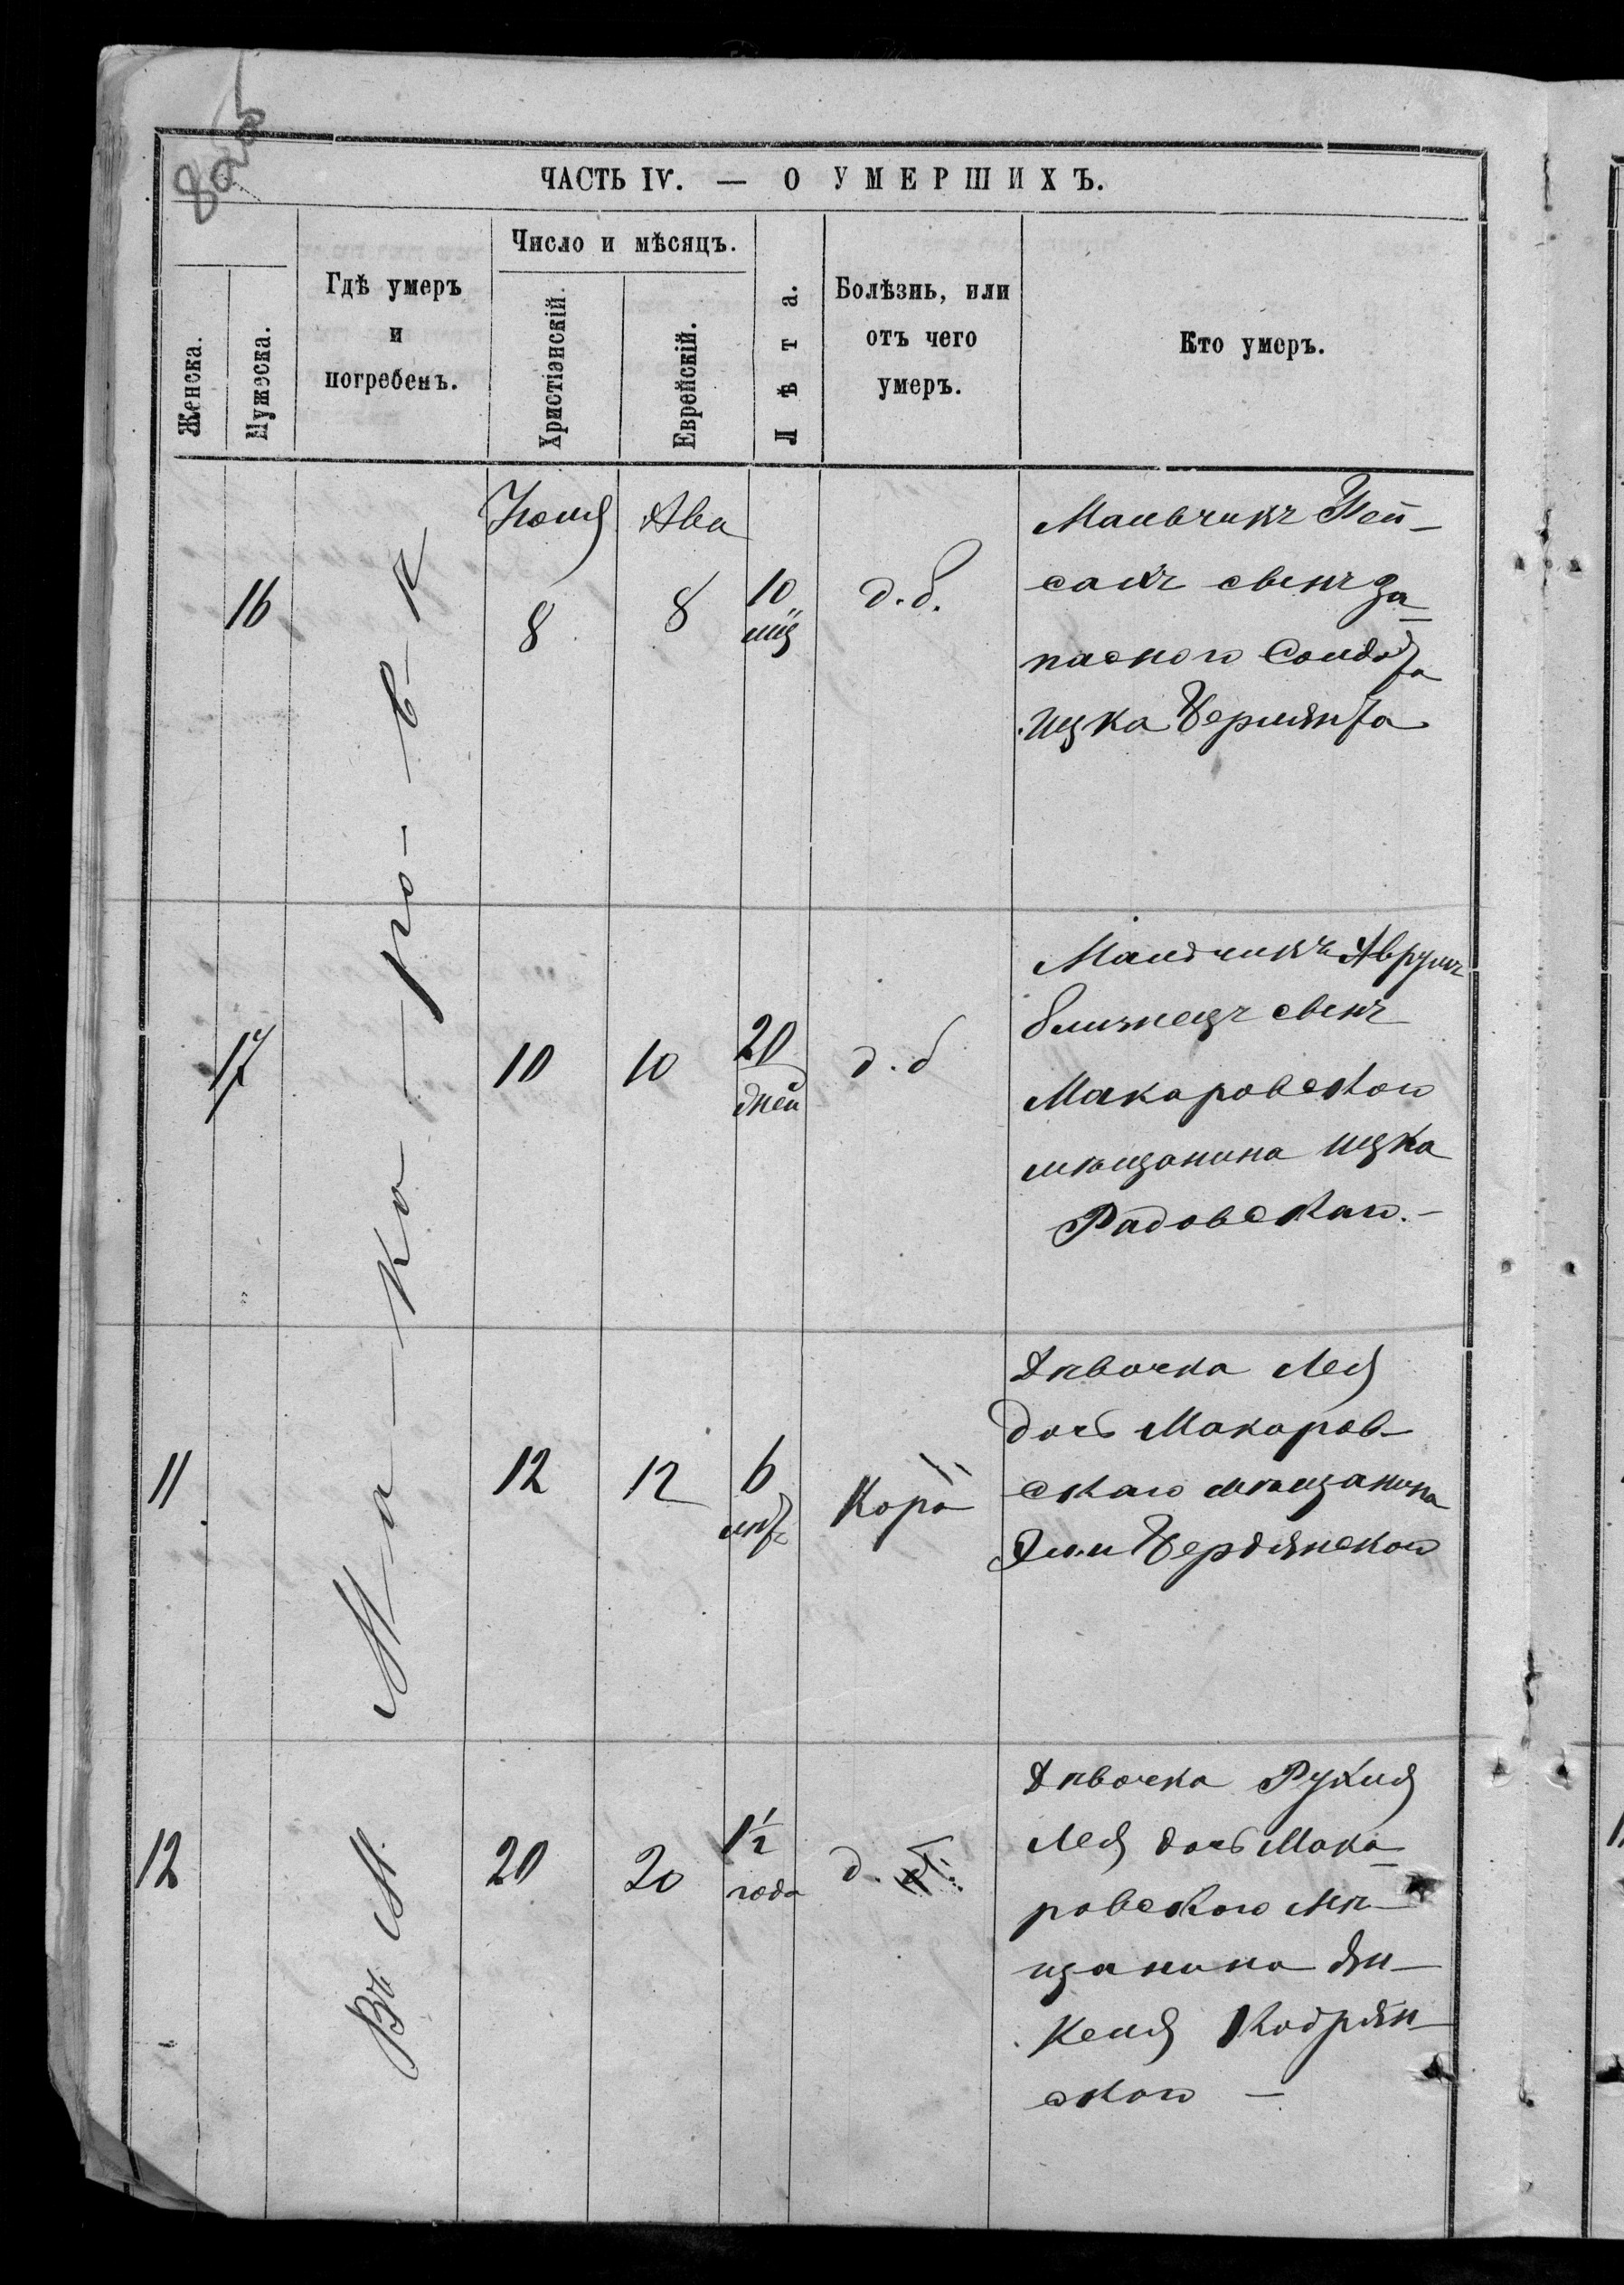 ЧАСТЬ IV. — О УМЕРШИХЪ.
Женска.
Мужеска.
Гдѣ умеръ
и
погребенъ.
Число и мѣсяцъ.
Христіанскій.
Еврейскій.
Лѣта.
Болѣзнь, или
отъ чего
умеръ.
Кто умеръ.
Въ М. Ма-ка-ро-в-ѣ
Іюля
Ава
16
8
8
10
мц
д. б.
Мальчикъ Пей-
сахъ сынъ за-
паснаго Солдата
Ицка
17
10
10
20
дней
д. б
Мальчикъ Аврумъ
близнецъ сынъ
Макаровскаго
мѣщанина Ицка
Радовскаго. —
11
12
12
6
Корь
Дѣвочка Лея
дочь Макаров-
скаго мѣщанина
Бердянскаго
12
20
20
1½
года
д.
Дѣвочка Рухля
Лея дочь Мака-
ровскаго Мѣ-
щанина Ян-
келя Кодрян-
скаго —